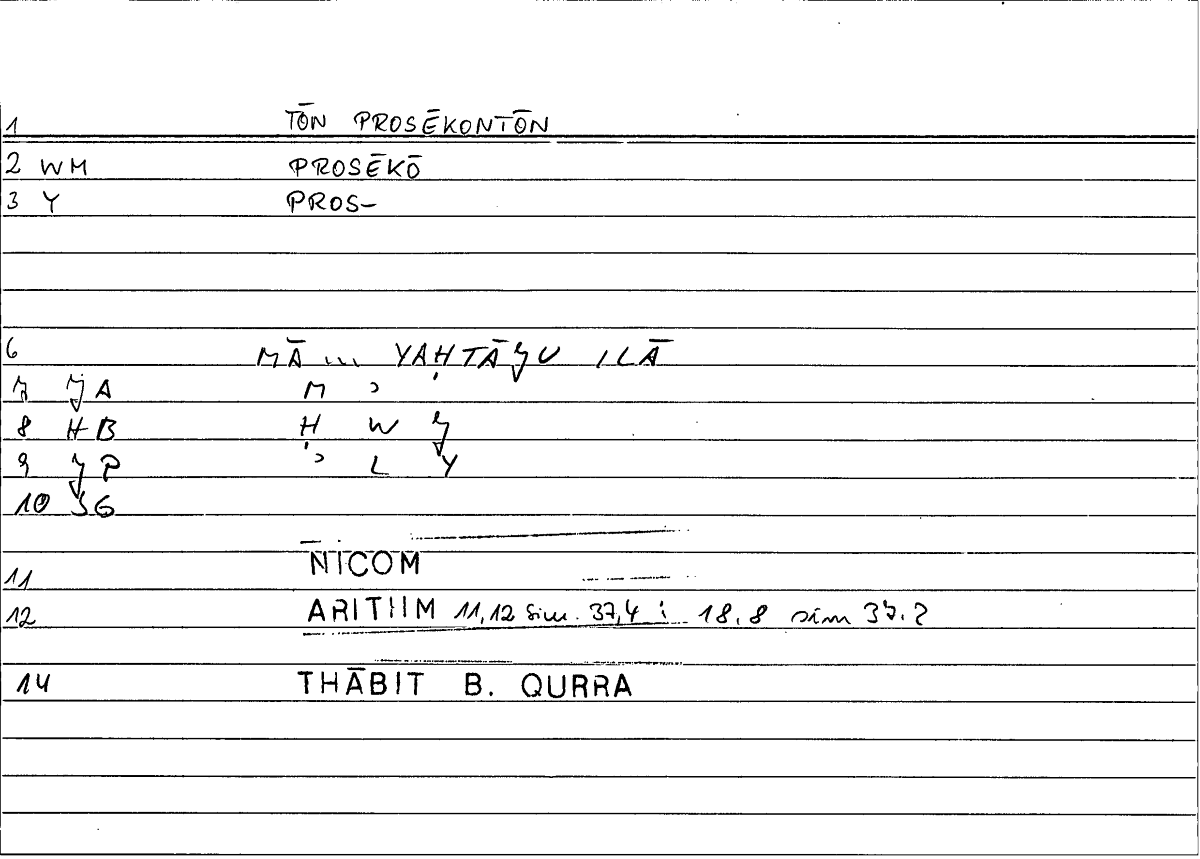 1 TŌN PROSĒKONTŌN
2 WM PROSĒKŌ
3 Y PROS-
6 MĀ ... YAḤTĀǦU ILĀ
7 ǦA M ʾ
8 HB Ḥ W Ǧ
9 ǦP ʾ L Y
10 SG
11 NICOM
12 ARITHM 11,12 sim. 37,4 ; 18.8 sim 37.?
14 THĀBIT B. QURRA